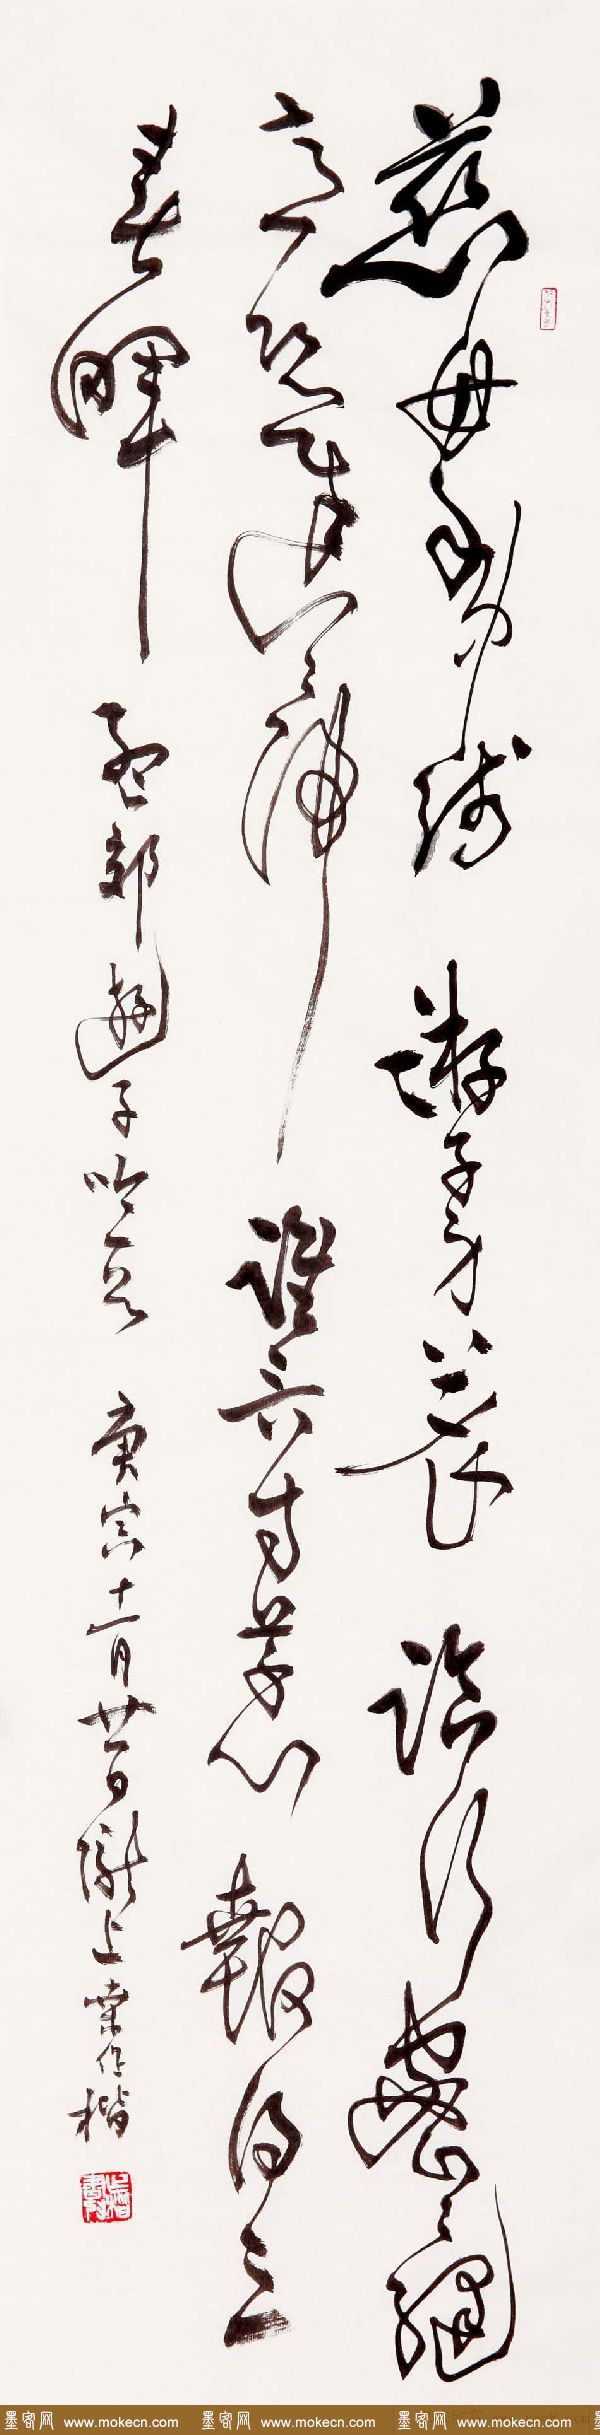 慈母手中線游子身上衣臨行密々縫
意恐遲々歸誰言寸草心報得三
春暉 孟郊遊子吟一首 庚寅十一月廿一日隴上桑作楷
墨客网 www.mokecn.com 墨客网 www.mokecn.com 墨客网 www.mokecn.com